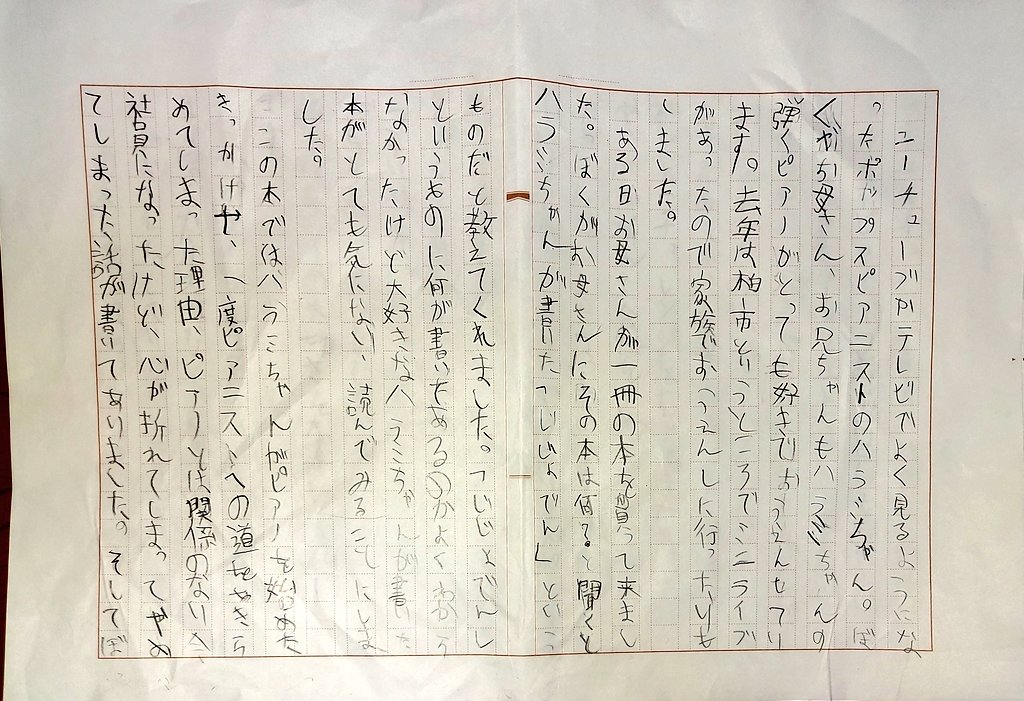 ユーチューブやテレビでよく見るようにな
ったポップスピアニストのハラミちゃん。ぼ
くやお母さん、お兄ちゃんもハラミちゃんの
弾くピアノがとっても好きでおうえんしてい
ます。去年は柏市というところでミニライブ
があったので家族でおうえんしに行ったりも
しました。
ある日お母さんが一冊の本を買って来まし
た。ぼくがお母さんにその本は何？と聞くと
ハラミちゃんが書いた「じじょでん」という
ものだと教えてくれました。「じじょでん」
というものに何が書いてあるのかよくわから
なかったけど大好きなハラミちゃんが書いた
本がとても気になり、読んでみることにしま
した。
この本ではハラミちゃんがピアノを始めた
きっかけや、一度ピアニストへの道をあきら
めてしまった理由、ピアノとは関係のない会
社員になったけど、心が折れてしまってやめ
てしまった話が書いてありました。そしてぼ